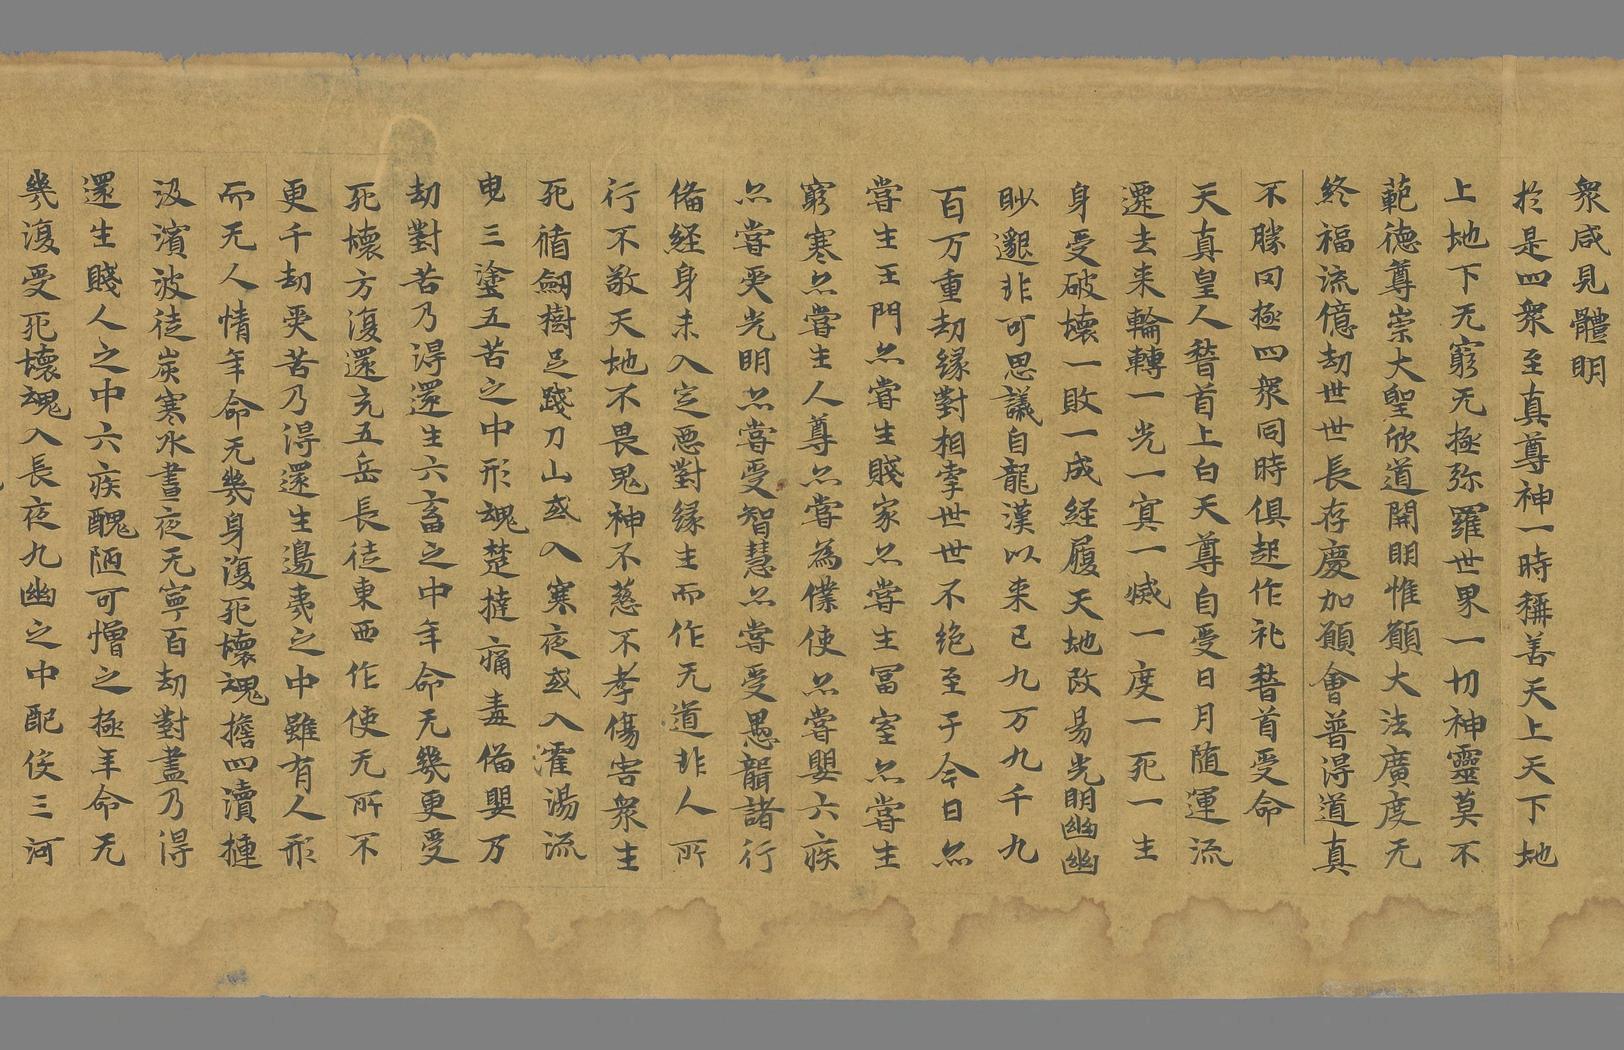 衆咸見體明
於是四衆至真尊神一時稱善天上天下地
上地下无窮无極弥羅世界一切神靈莫不
範德尊崇大聖欣道開明惟願大法廣度无
終福流億劫世世長存慶加願會普得道真
不勝罔極四衆同時俱起作礼稽首受命
天真皇人稽首上白天尊自受日月随運流
遷去来輪轉一光一冥一滅一度一死一生
身受破壞一敗一成経履天地改易光明幽幽
眇邈非可思議自龍漢以来已九万九千九
百万重劫縁對相牽世世不絶至于今日尒
嘗生王門尒嘗生賤家尒嘗生冨室尒嘗生
窮寒尒嘗生人尊尒嘗為僕使尒嘗嬰六疾
尒嘗更光明尒嘗受智慧尒嘗受愚聾諸行
俻経身未入定惡對縁生而作无道非人所
行不敬天地不畏鬼神不慈不孝傷害衆生
死循劔樹足踐刀山或入寒夜或入濩湯流
曳三塗五苦之中形魂楚撻痛毒俻嬰万
劫對苦乃得還生六畜之中年命无幾更受
死壞方復還充五岳長徒東西作使无所不
更千劫更苦乃得還生邊夷之中雖有人形
而无人情年命无幾身復死壞魂擔四瀆揰
汲濱波徒炭寒水晝夜无寧百劫對盡乃得
還生賤人之中六疾醜陋可憎之極年命无
幾復受死壞魂入長夜九幽之中配侫三河